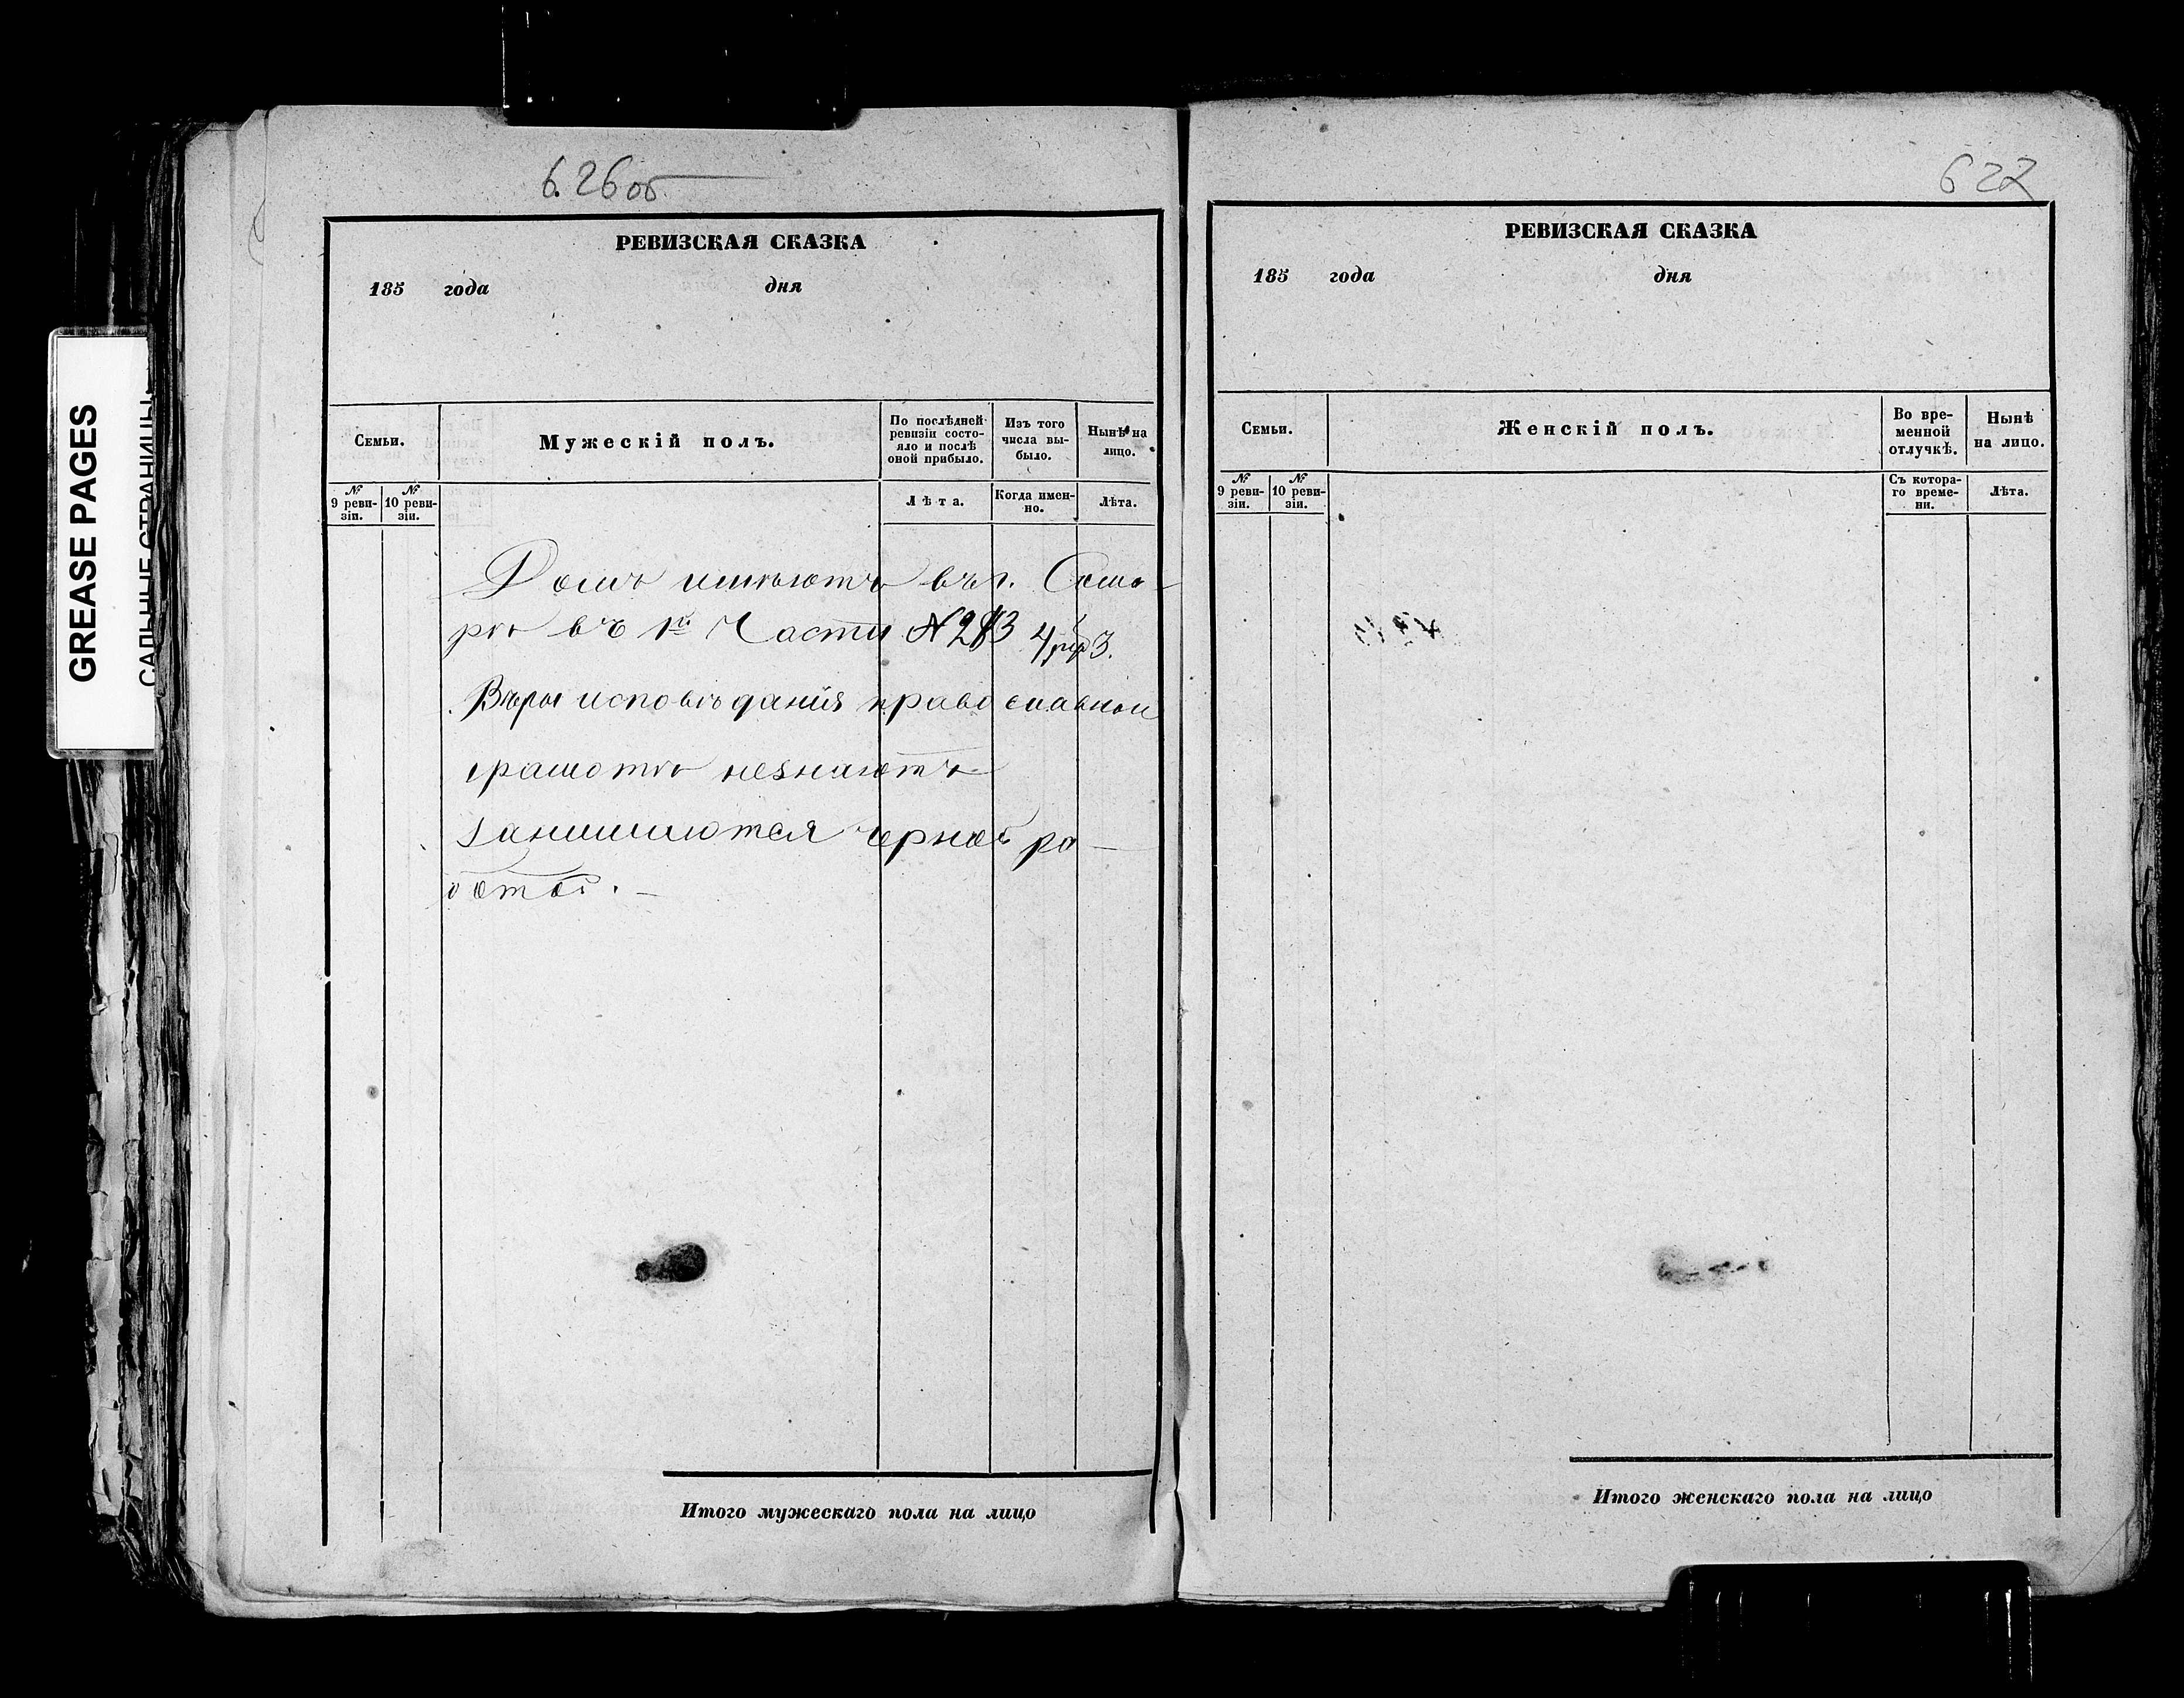 GREASE PAGES
САЛЬНЫЕ СТРАНИЦЫ
626 об
РЕВИЗСКАЯ СКАЗКА
185 года дня
Семьи.
Мужескій полъ.
По послѣдней ревизіи состо-
яло и послѣ
оной прибыло.
Изъ того
числа вы-
было.
Нынѣ на
лицо.
№ 9 реви-
зіи.
№ 10 реви-
зіи.
Лѣта.
Когда имен-
но.
Лѣта.
Домъ имѣютъ въ г. Сама-
рѣ въ 1й Части №283
Вѣры исповѣданія православной
грамотѣ незнаютъ
занимаются черной ра-
ботой.
Итого мужескаго пола на лицо
627
РЕВИЗСКАЯ СКАЗКА
185 года дня
Семьи.
Женскій полъ.
Во вре-
менной
отлучкѣ.
Нынѣ
на лицо.
№ 9 реви-
зіи.
№ 10 реви-
зіи.
Съ котора-
го време-
ни.
Лѣта.
Итого женскаго пола на лицо